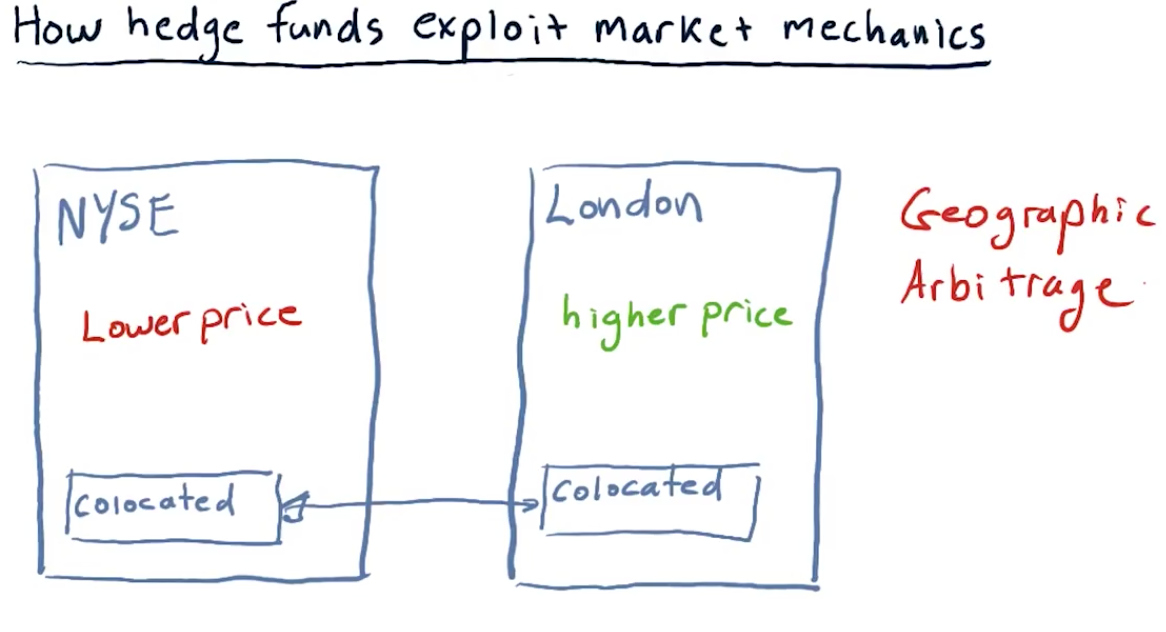 How hedge funds exploit market mechanics
NYSE
Lower price
colocated
London
higher price
colocated
Geographic
Arbitrage